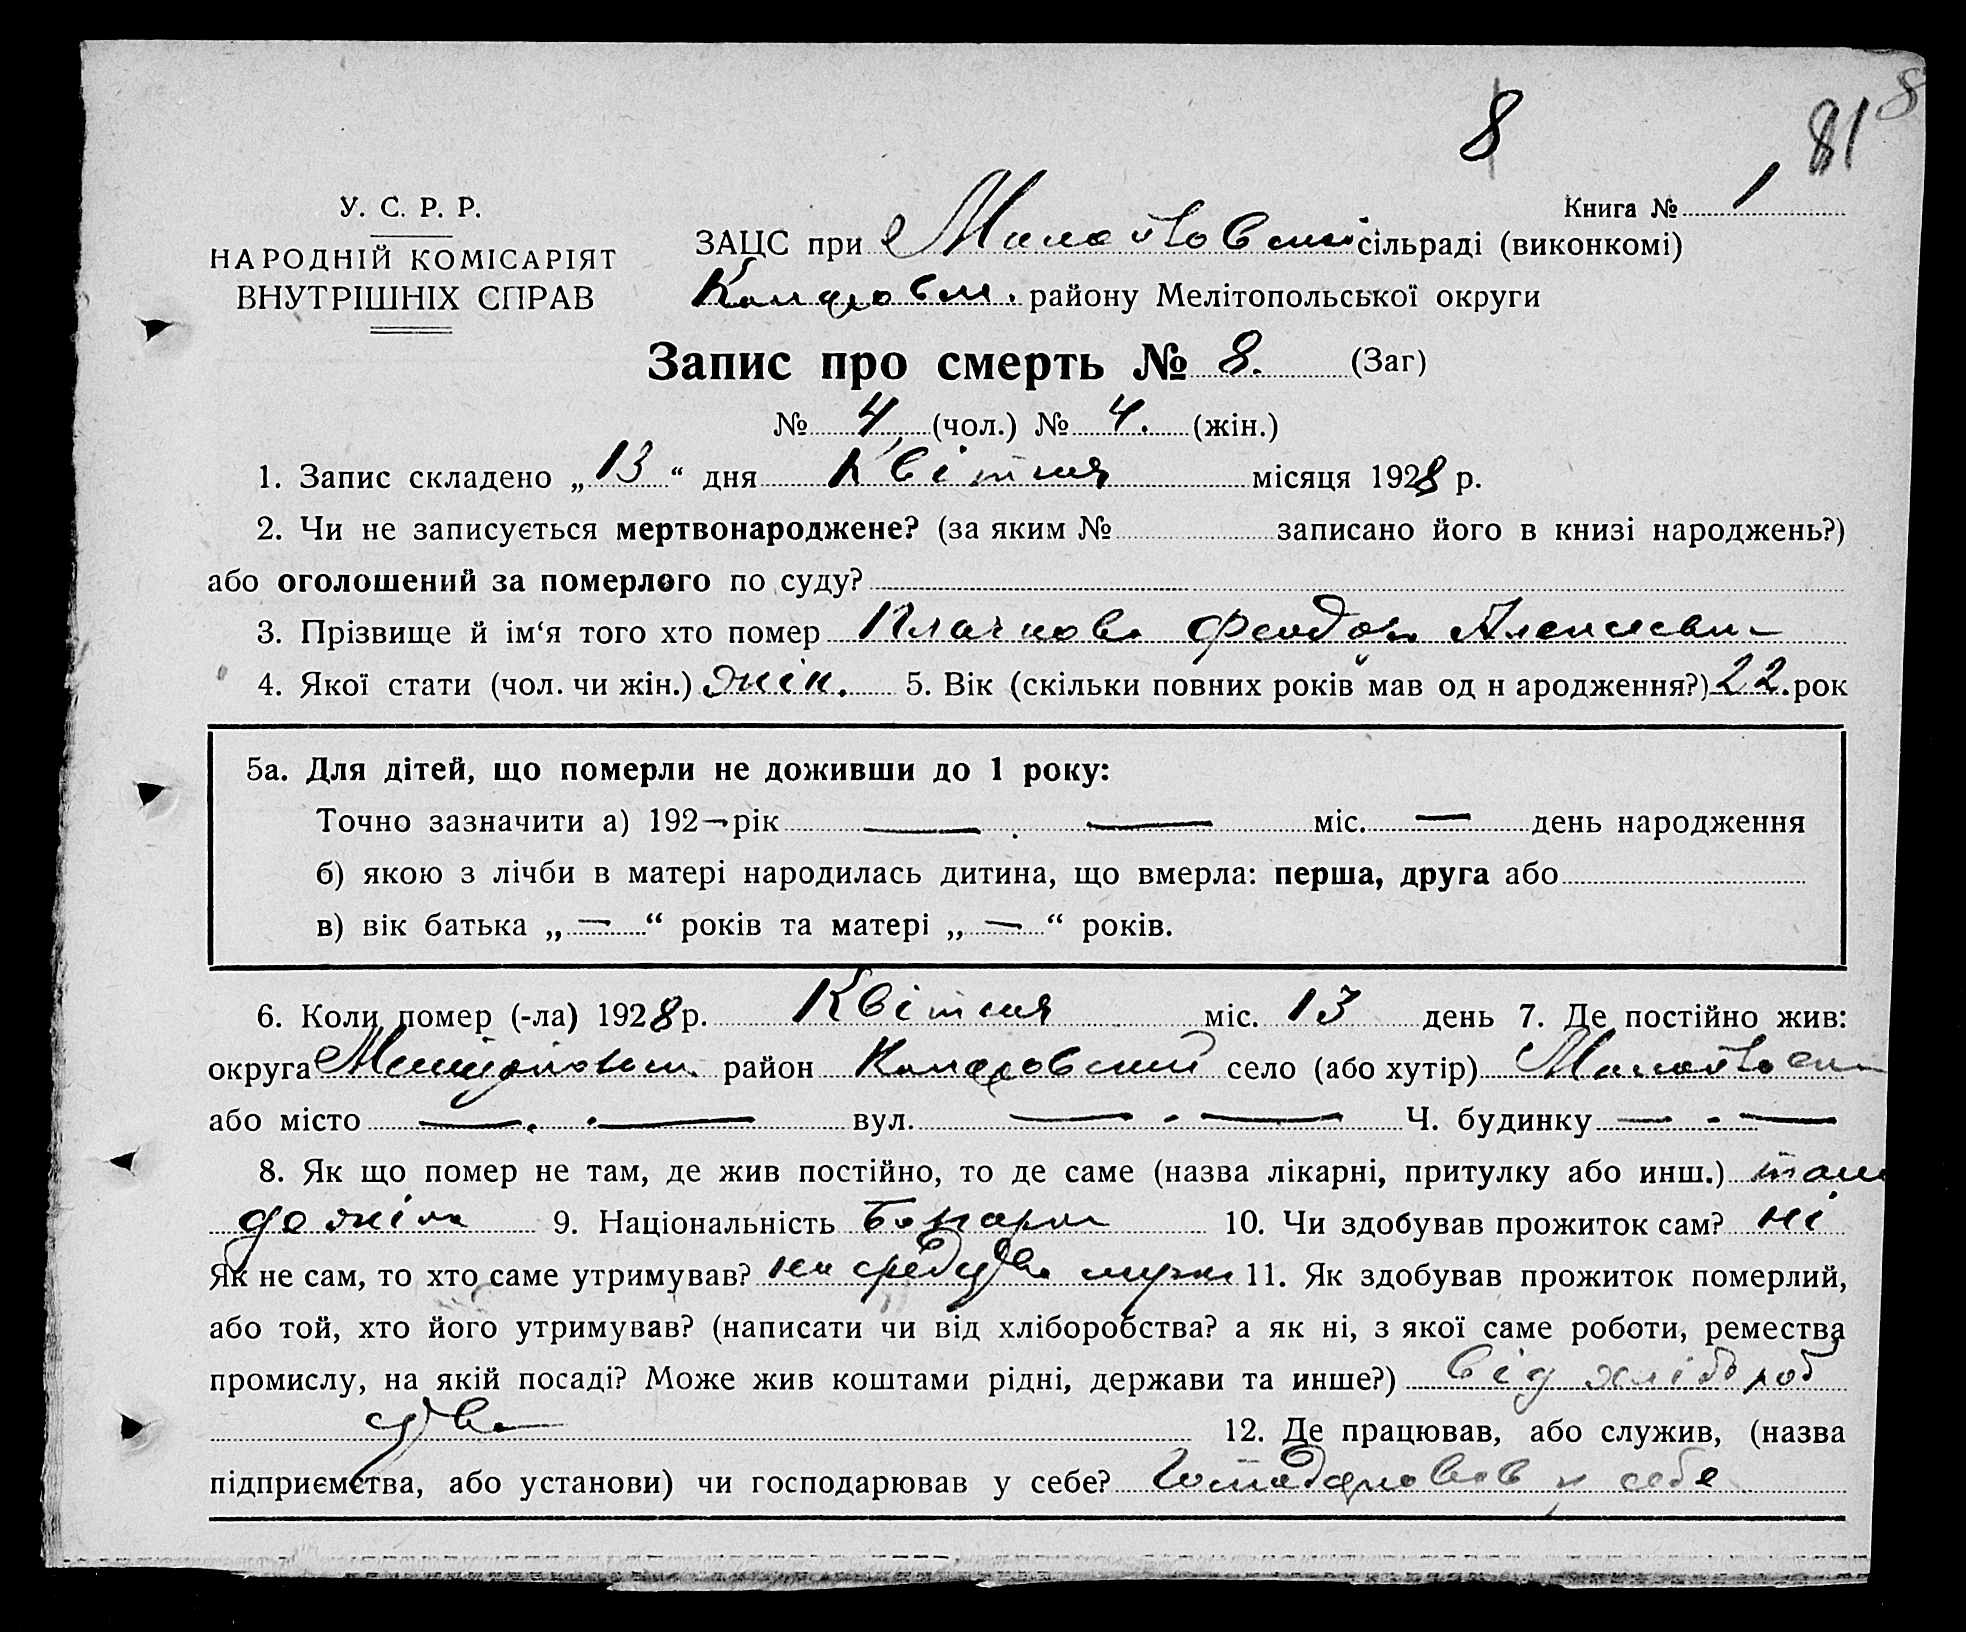 8 81 8
У. С. Р. Р.
НАРОДНІЙ КОМІСАРІЯТ
ВНУТРІШНІХ СПРАВ
Книга № 1
ЗАЦС при сільраді (виконкомі)
району Мелітопольської округи
Запис про смерть № 8. (Заг)
№ 4 (чол.) № 4. (жін.)
1. Запис складено „ 13 “ дня Квітня місяця 1928 р.
2. Чи не записується мертвонароджене? (за яким № записано його в книзі народжень?)
або оголошений за померлого по суду?
3. Прізвище й ім‘я того хто помер Плачкова
4. Якої стати (чол. чи жін.) жін. 5. Вік (скільки повних років мав од н ародження?) 22. рок
5а. Для дітей, що померли не доживши до 1 року:
Точно зазначити а) 192— рік — — міс. — день народження
б) якою з лічби в матері народилась дитина, що вмерла: перша, друга або
в) вік батька „ — “ років та матері „ — “ років.
6. Коли помер (-ла) 1928 р. Квітня міс. 13 день 7. Де постійно жив:
округа район село (або хутір)
або місто — . — вул. — . — Ч. будинку — - —
8. Як що помер не там, де жив постійно, то де саме (назва лікарні, притулку або инш.) там
де жіла 9. Національність 10. Чи здобував прожиток сам? ні
Як не сам, то хто саме утримував? на средства мужа 11. Як здобував прожиток померлий,
або той, хто його утримував? (написати чи від хліборобства? а як ні, з якої саме роботи, ремества
промислу, на якій посаді? Може жив коштами рідні, держави та инше?) від хлібороб
ства 12. Де працював, або служив, (назва
підприємства, або установи) чи господарював у себе? у себе